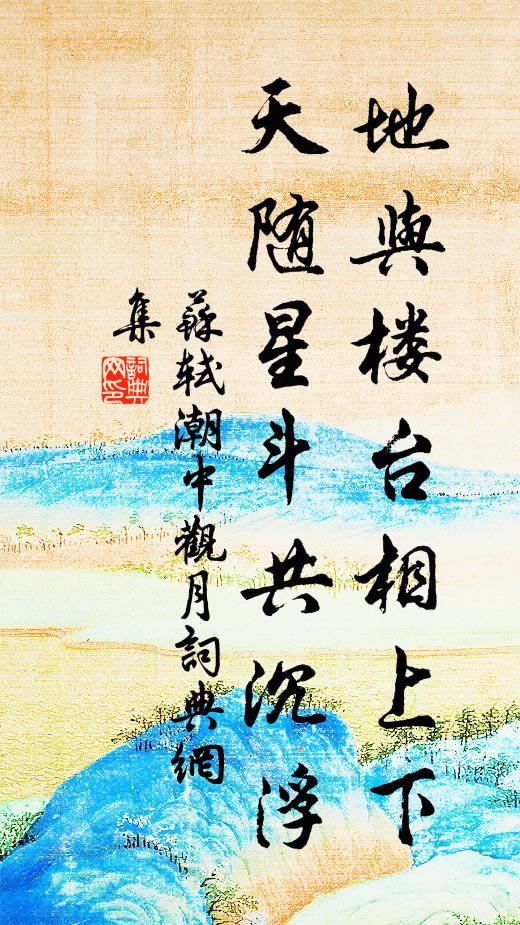 地與楼台相上下
天随星斗共沉浮
蘇轼潮中觀月詞典網
集
詞典
网印